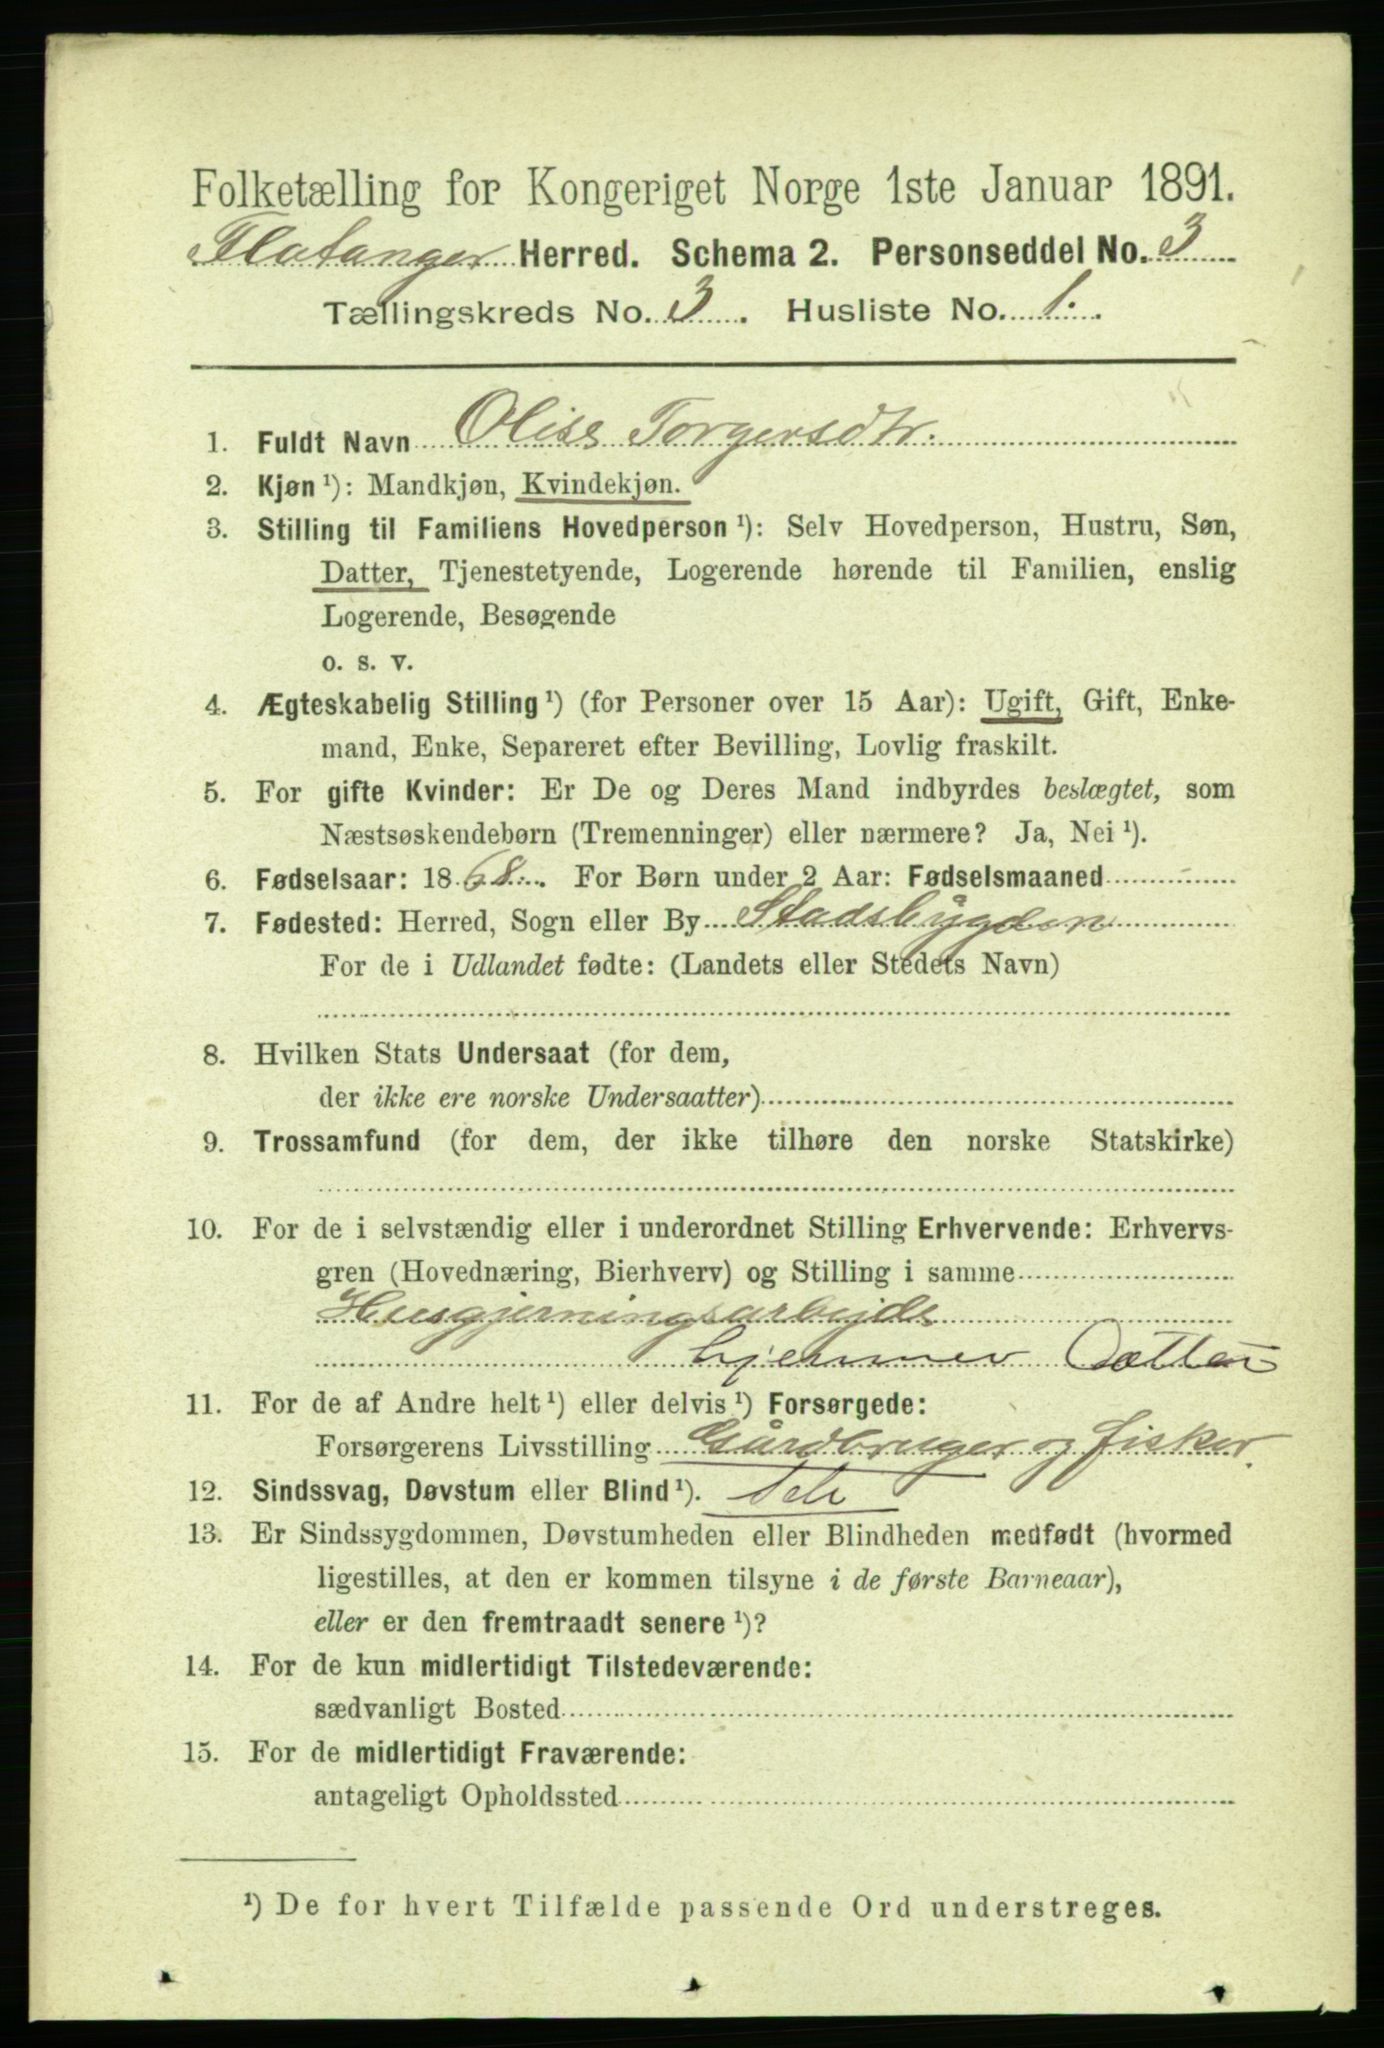 Folketælling for Kongeriget Norge 1ste Januar 1891.
Flatanger Herred. Schema 2. Personseddel No. 3
Tællingskreds No. 3. Husliste No. 1.
1. Fuldt Navn Olise Torgersdtr.
2. Kjøn ¹): Mandkjøn, Kvindekjøn.
3. Stilling til Familiens Hovedperson ¹): Selv Hovedperson, Hustru, Søn,
Datter, Tjenestetyende, Logerende hørende til Familien, enslig
Logerende, Besøgende
o. s. v.
4. Ægteskabelig Stilling ¹) (for Personer over 15 Aar): Ugift, Gift, Enke-
mand, Enke, Separeret efter Bevilling, Lovlig fraskilt.
5. For gifte Kvinder: Er De og Deres Mand indbyrdes beslægtet, som
Næstsøskendebørn (Tremenninger) eller nærmere? Ja, Nei ¹).
6. Fødselsaar: 1868. For Børn under 2 Aar: Fødselsmaaned
7. Fødested: Herred, Sogn eller By Stadsbygden
For de i Udlandet fødte: (Landets eller Stedets Navn)
8. Hvilken Stats Undersaat (for dem,
der ikke ere norske Undersaatter)
9. Trossamfund (for dem, der ikke tilhøre den norske Statskirke)
10. For de i selvstændig eller i underordnet Stilling Erhvervende: Erhvervs-
gren (Hovednæring, Bierhverv) og Stilling i samme
Husgjerningsarbejde
hjemmev Datter
11. For de af Andre helt ¹) eller delvis ¹) Forsørgede:
Forsørgerens Livsstilling Gårdbruger og fisker.
12. Sindssvag, Døvstum eller Blind ¹).
13. Er Sindssygdommen, Døvstumheden eller Blindheden medfødt (hvormed
ligestilles, at den er kommen tilsyne i de første Barneaar),
eller er den fremtraadt senere ¹)?
14. For de kun midlertidigt Tilstedeværende:
sædvanligt Bosted
15. For de midlertidigt Fraværende:
antageligt Opholdssted
¹) De for hvert Tilfælde passende Ord understreges.